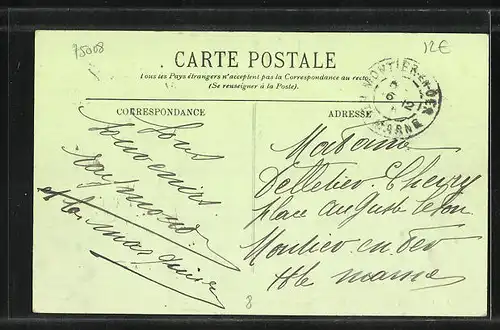 75008
12€
CARTE POSTALE
Tous les Pays étrangers n'acceptent pas la Correspondance au recto
(Se renseigner à la Poste).
CORRESPONDANCE
ADRESSE
MONTIER-EN-DER
6
12
Hte MARNE
Souvenirs
Raymond
Madame
Delletier
Place Auguste
Montier en Der
Hte Marne
8